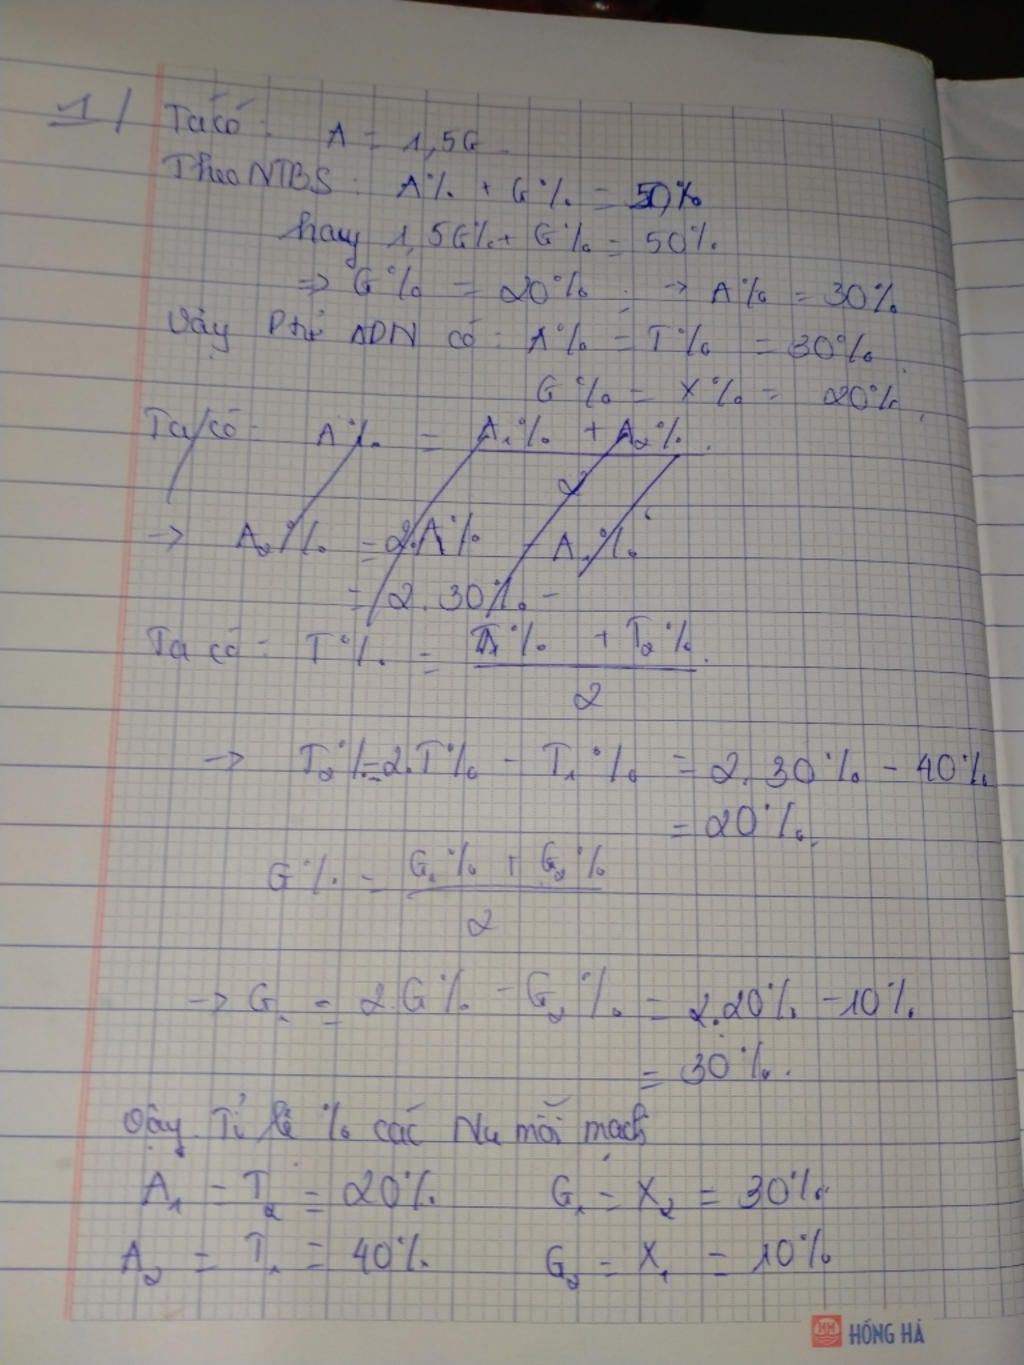 1/ Ta có: A = 1,5G.
Theo NTBS: A% + G% = 50%
hay 1,5G% + G% = 50%.
=> G% = 20%; -> A% = 30%.
Vậy Phtử ADN có: A% = T% = 30%.
G% = X% = 20%.
Ta có: A% = A₁% + A₂%.
2
-> A₂% = 2.A% - A₁%
= 2.30% -
Ta có: T% = T₁% + T₂%.
2
-> T₂% = 2.T% - T₁% = 2.30% - 40%
= 20%.
G% = G₁% + G₂%
2
-> G₁ = 2.G% - G₂% = 2.20% - 10%.
= 30%.
Vậy Tỉ lệ % các Nu mỗi mạch
A₁ = T₂ = 20%. G₁ = X₂ = 30%.
A₂ = T₁ = 40%. G₂ = X₁ = 10%
HH HỒNG HÀ